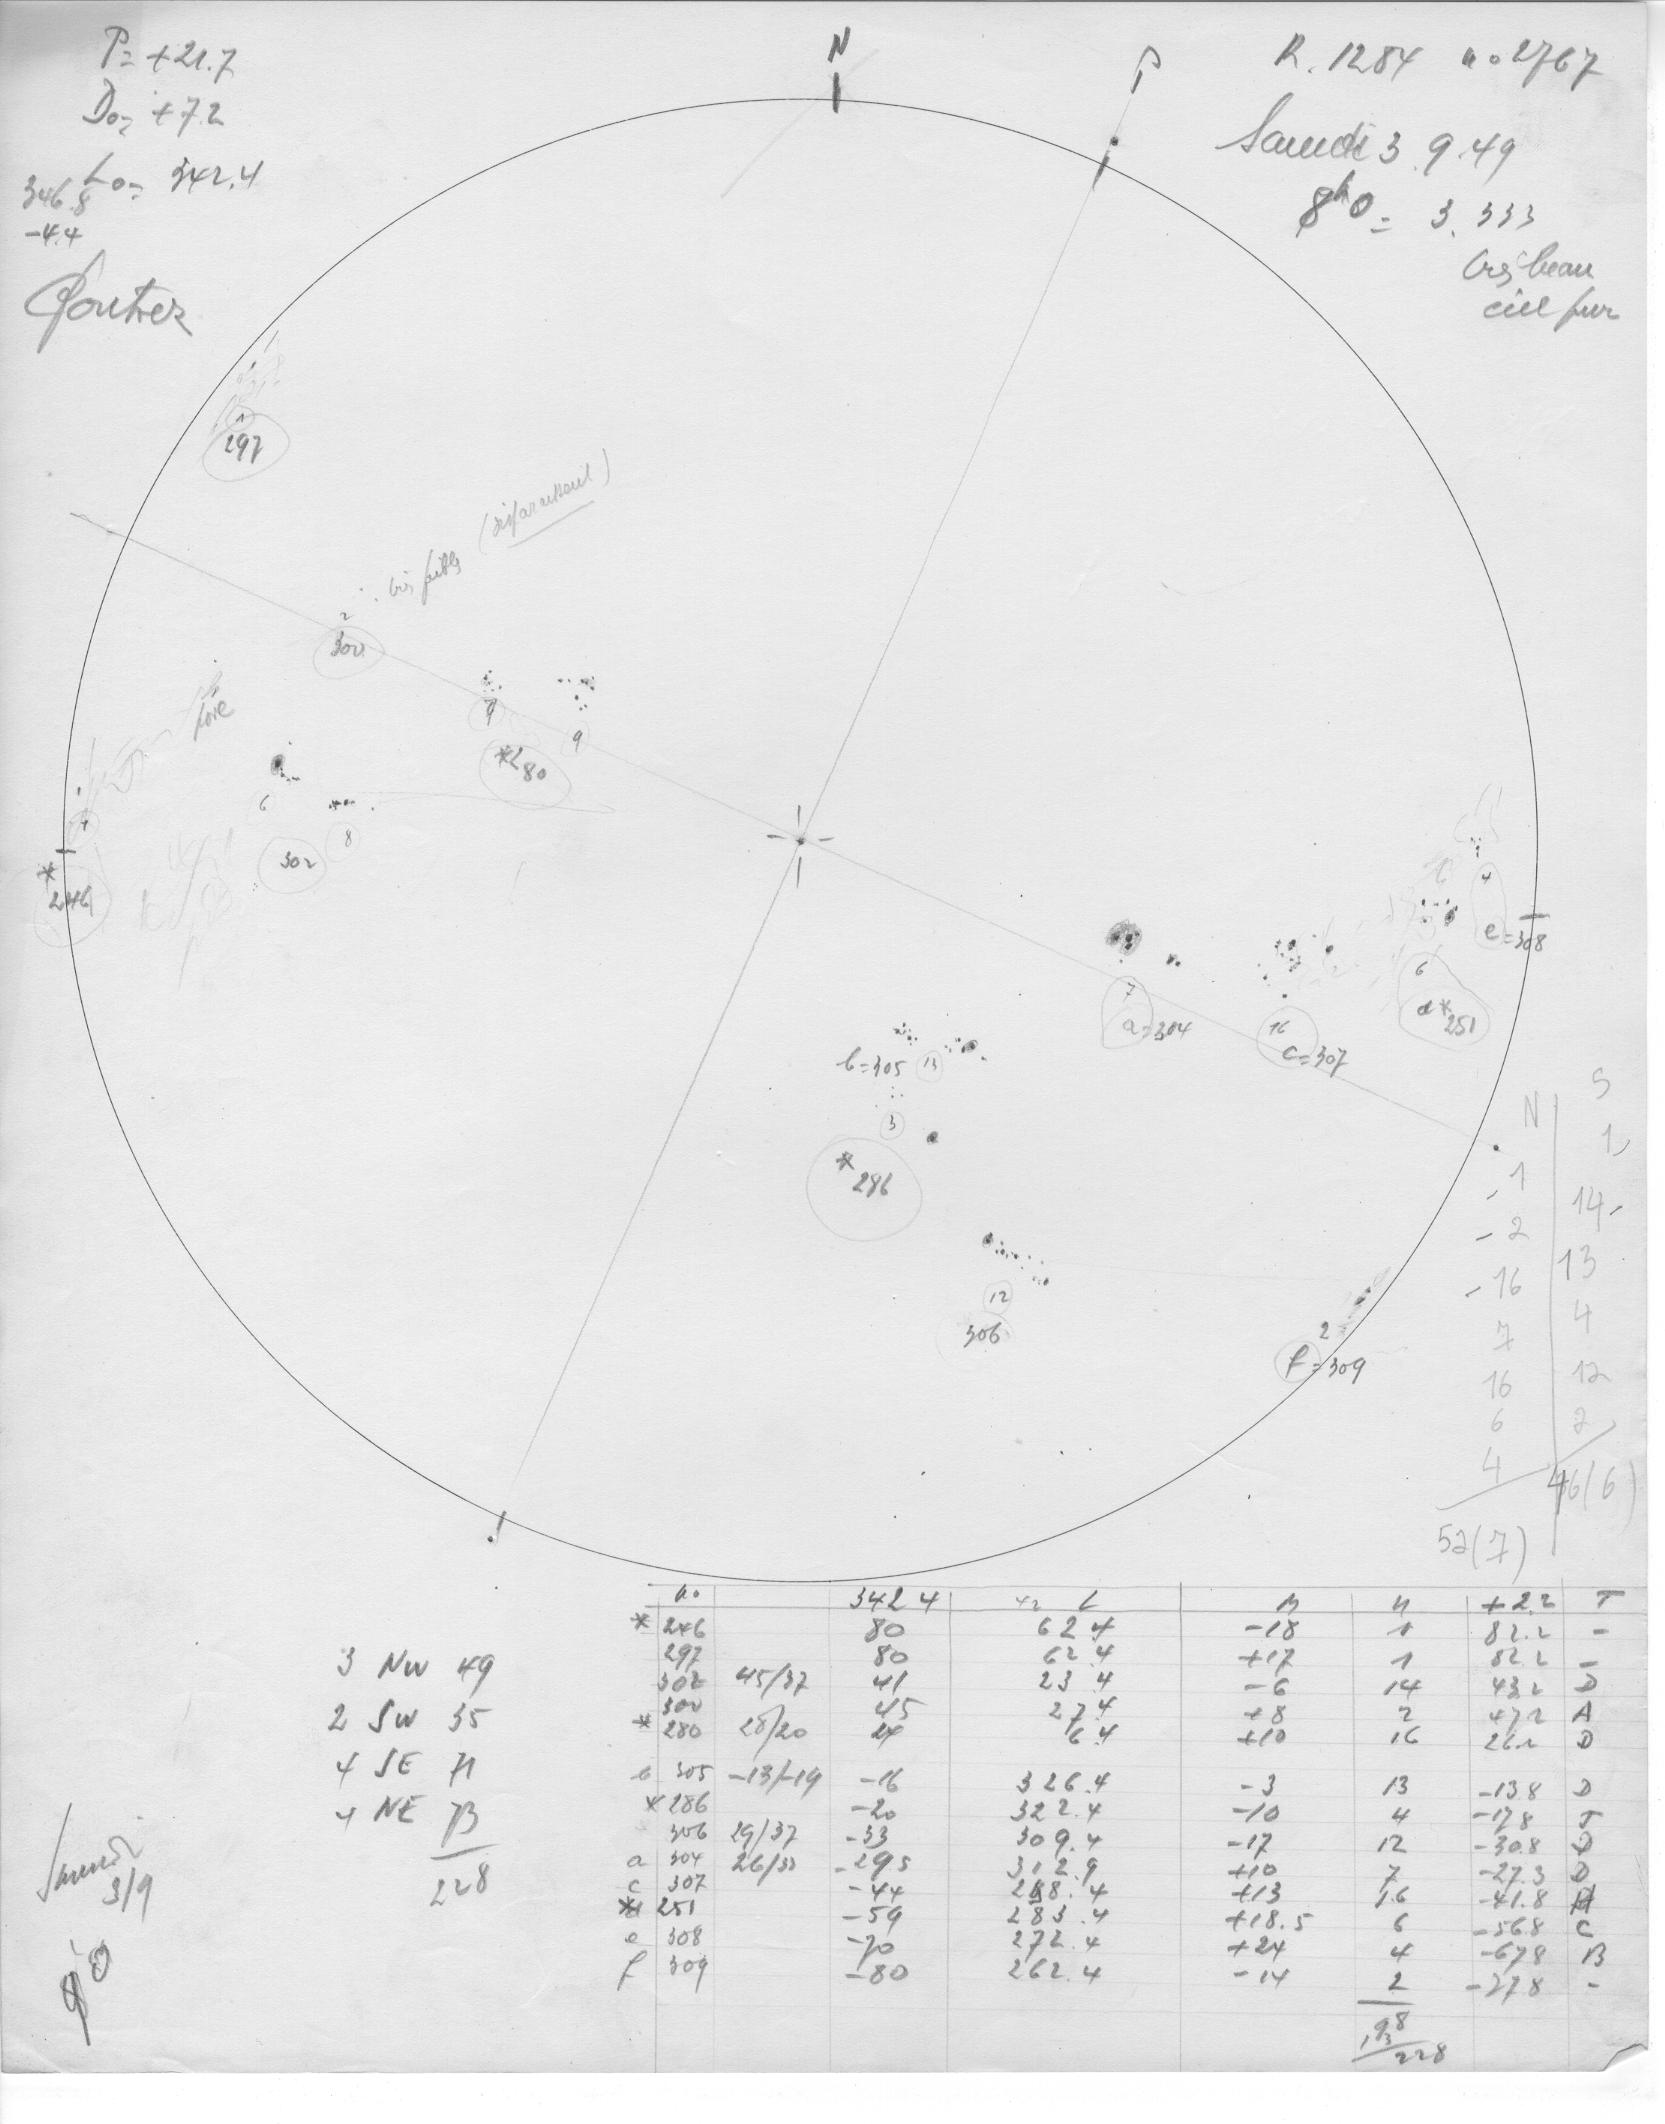 P= +21.7
Do= +7.2
Lo= 342.4
346.8
-4.4
N
P
R. 1284 no 2767
Samedi 3.9.49
8h0 = 3.333
très beau
ciel pur
1
297
très faibles
2
300
9
9
*280
6
8
302
*
246
4
e=308
6
d*
251
7
a=304
16
c=307
b=305
13
3
*
286
12
306
2
f=309
N S
1 1
2 14
16 13
7 4
16 12
6 2
4 46(6)
52(7)
3 NW 49
2 SW 35
4 SE 71
4 NE 73
228
Samedi
3/9
no 342 4 L B N +2.2 T
* 246 80 62 4 -18 1 82.2 -
297 80 62 4 +17 1 82.2 -
302 45/37 41 23 4 -6 14 43.2 D
300 45 27 4 +8 2 47.2 A
* 280 28/20 24 6.4 +10 16 26.2 D
b 305 -13/-19 -16 326.4 -3 13 -13.8 D
* 286 -20 322.4 -10 4 -17.8 J
306 29/37 -33 309.4 -17 12 -30.8 D
a 304 26/33 -29.5 312.9 +10 7 -27.3 D
c 307 -44 298.4 +13 16 -41.8
251 -59 283.4 +18.5 6 -56.8 C
e 308 -70 272.4 +24 4 -67.8 B
f 309 -80 262.4 -14 2 -77.8 -
98
228